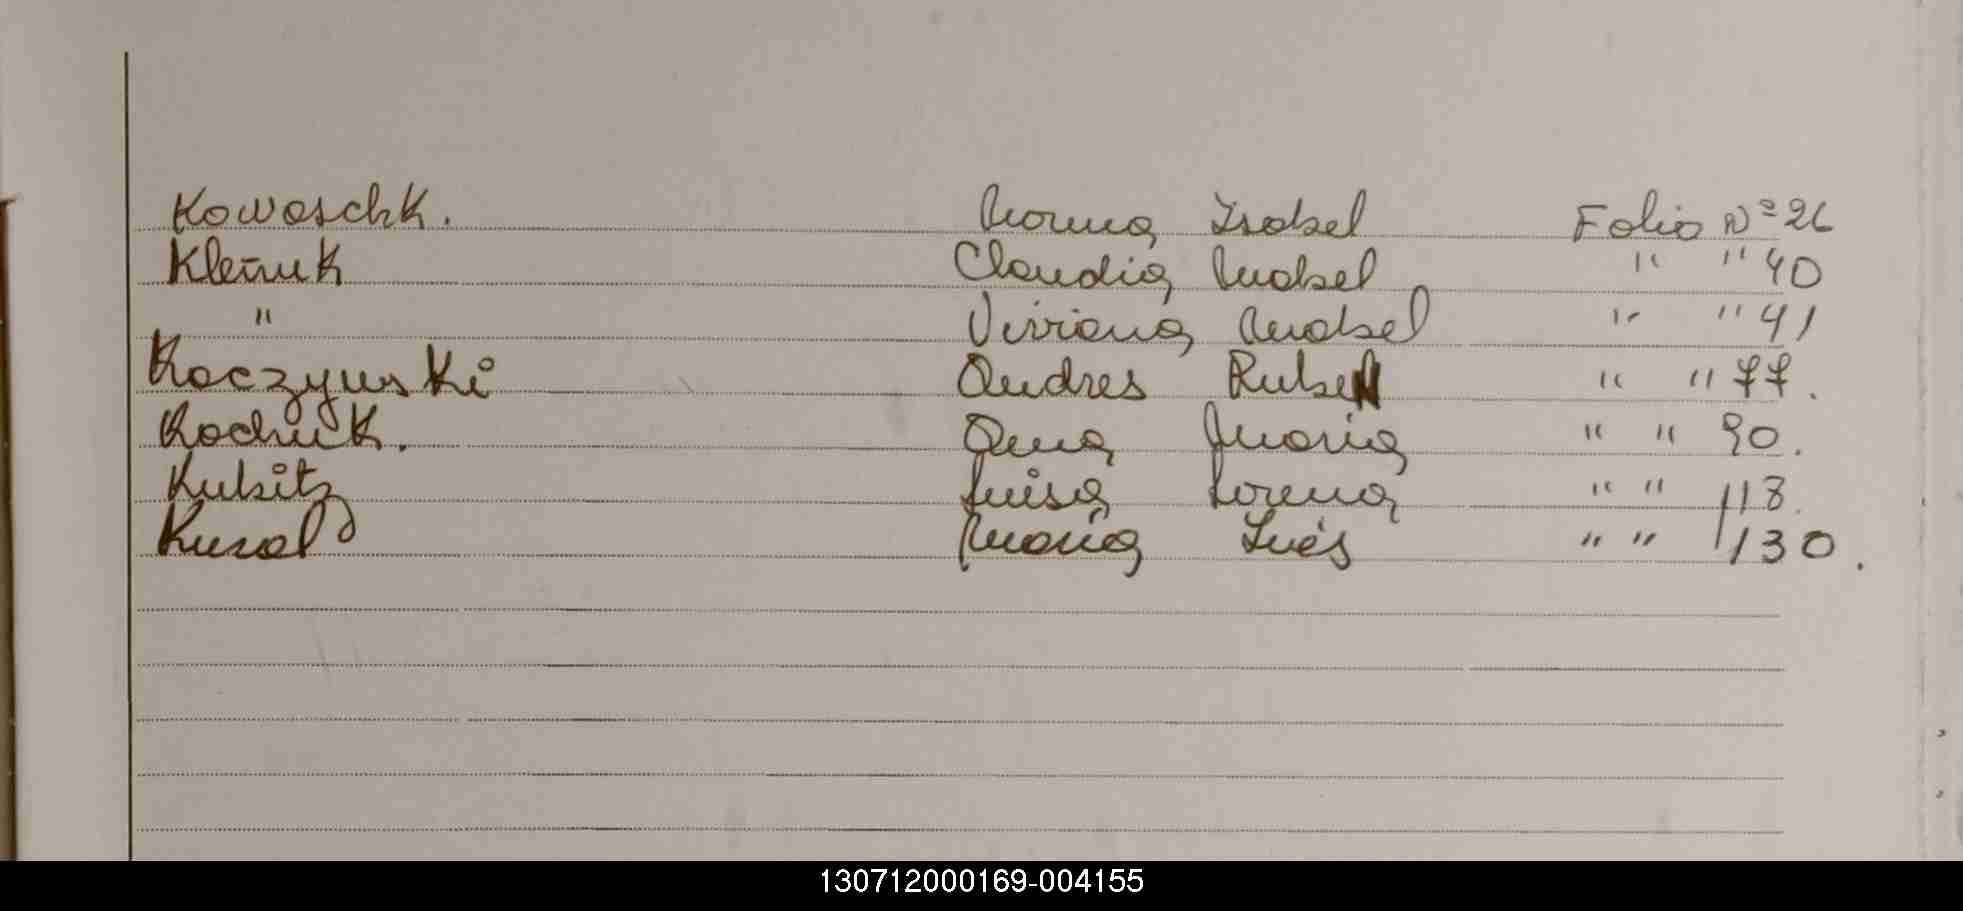 Kowaschk. Norma Isabel Folio Nº 26
Klemuk Claudia Mabel " " 40
" Viviana Mabel " " 41
Kaczynski Andres Ruben " " 77.
Kachuk. Ana Maria " " 90.
Kubitz Luisa Lorena " " 118.
Maria Inés " " 130.
130712000169-004155